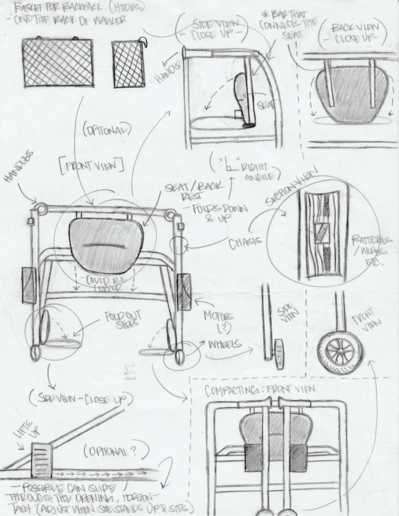 BASKET FOR BACKPACK (HOOKS)
- ONTO THE BACK OF WALKER
SIDE VIEW
- CLOSE UP -
* BAR THAT
CONNECTS THE
SEAT
(BACK VIEW)
- CLOSE UP -
HANDLES
SEAT
(OPTIONAL)
[FRONT VIEW]
("L" RIGHT
ANGLE)
HANDLES
SEAT/BACK
REST
- FOLDS DOWN
& UP
SECTION VIEW
CHASIS
BATTERIES
WIRES
ETC.
COULD BE
LOWER
FOLD OUT
STEPS
MOTORS
(?)
WHEELS
SIDE
VIEW
FRONT
VIEW
(SIDE VIEW - CLOSE UP)
COMPACTING: FRONT VIEW
LIFTS
UP
(OPTIONAL?)
POSSIBLE CAN SLIDE
THROUGH THE OPENING, HORIZON-
TALLY (ADJUST WHEN SHE STANDS UP & SITS)